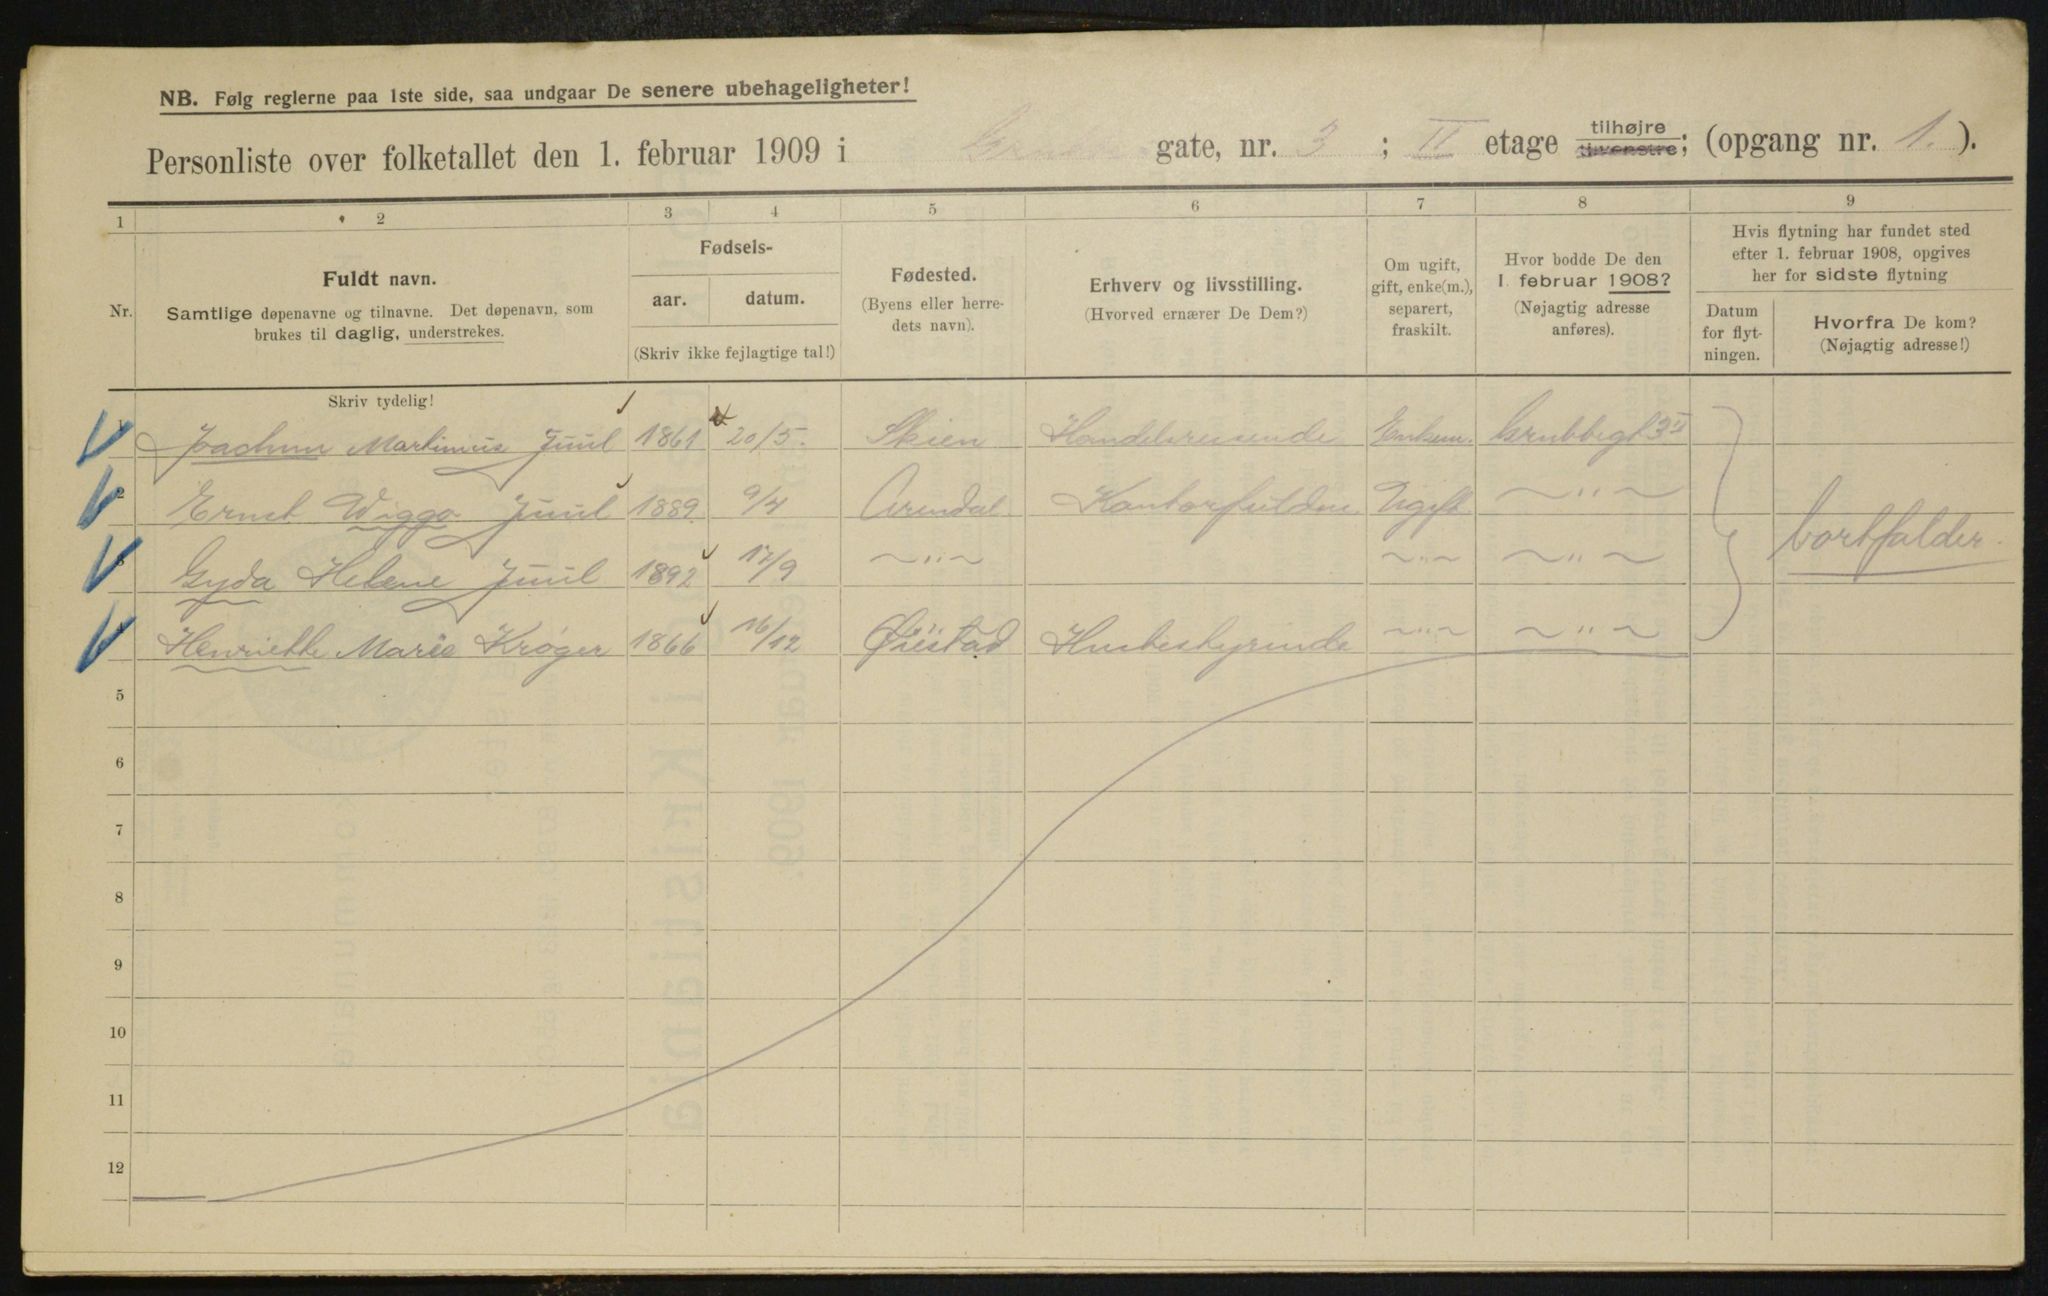 NB. Følg reglerne paa 1ste side, saa undgaar De senere ubehageligheter!
Personliste over folketallet den 1. februar 1909 i Grubbe gate, nr. 3 ; II etage tilhøjre tilvenstre; (opgang nr. 1. ).
1 2 3 4 5 6 7 8 9
Nr.
Fuldt navn.
Samtlige døpenavne og tilnavne. Det døpenavn, som
brukes til daglig, understrekes.
Fødsels-
aar. datum.
(Skriv ikke fejlagtige tal!)
Fødested.
(Byens eller herre-
dets navn).
Erhverv og livsstilling.
(Hvorved ernærer De Dem?)
Om ugift,
gift, enke(m.),
separert,
fraskilt.
Hvor bodde De den
1. februar 1908?
(Nøjagtig adresse
anføres).
Hvis flytning har fundet sted
efter 1. februar 1908, opgives
her for sidste flytning
Datum
for flyt-
ningen.
Hvorfra De kom?
(Nøjagtig adresse!)
Skriv tydelig!
1 Joachim Martinius Juul 1861 20/5. Skien Handelsreisende Enkem. Grubbegt 3 II
2 Ernst Wiggo Juul 1889 9/4 Arendal Kontorfuldm. Ugift — " —
3 Gyda Helene Juul 1892 17/9 — " — — " — — " —
4 Henriette Marie Krøger 1866 16/12 Øiestad Husbestyrinde — " — — " —
bortfalder.
5
6
7
8
9
10
11
12